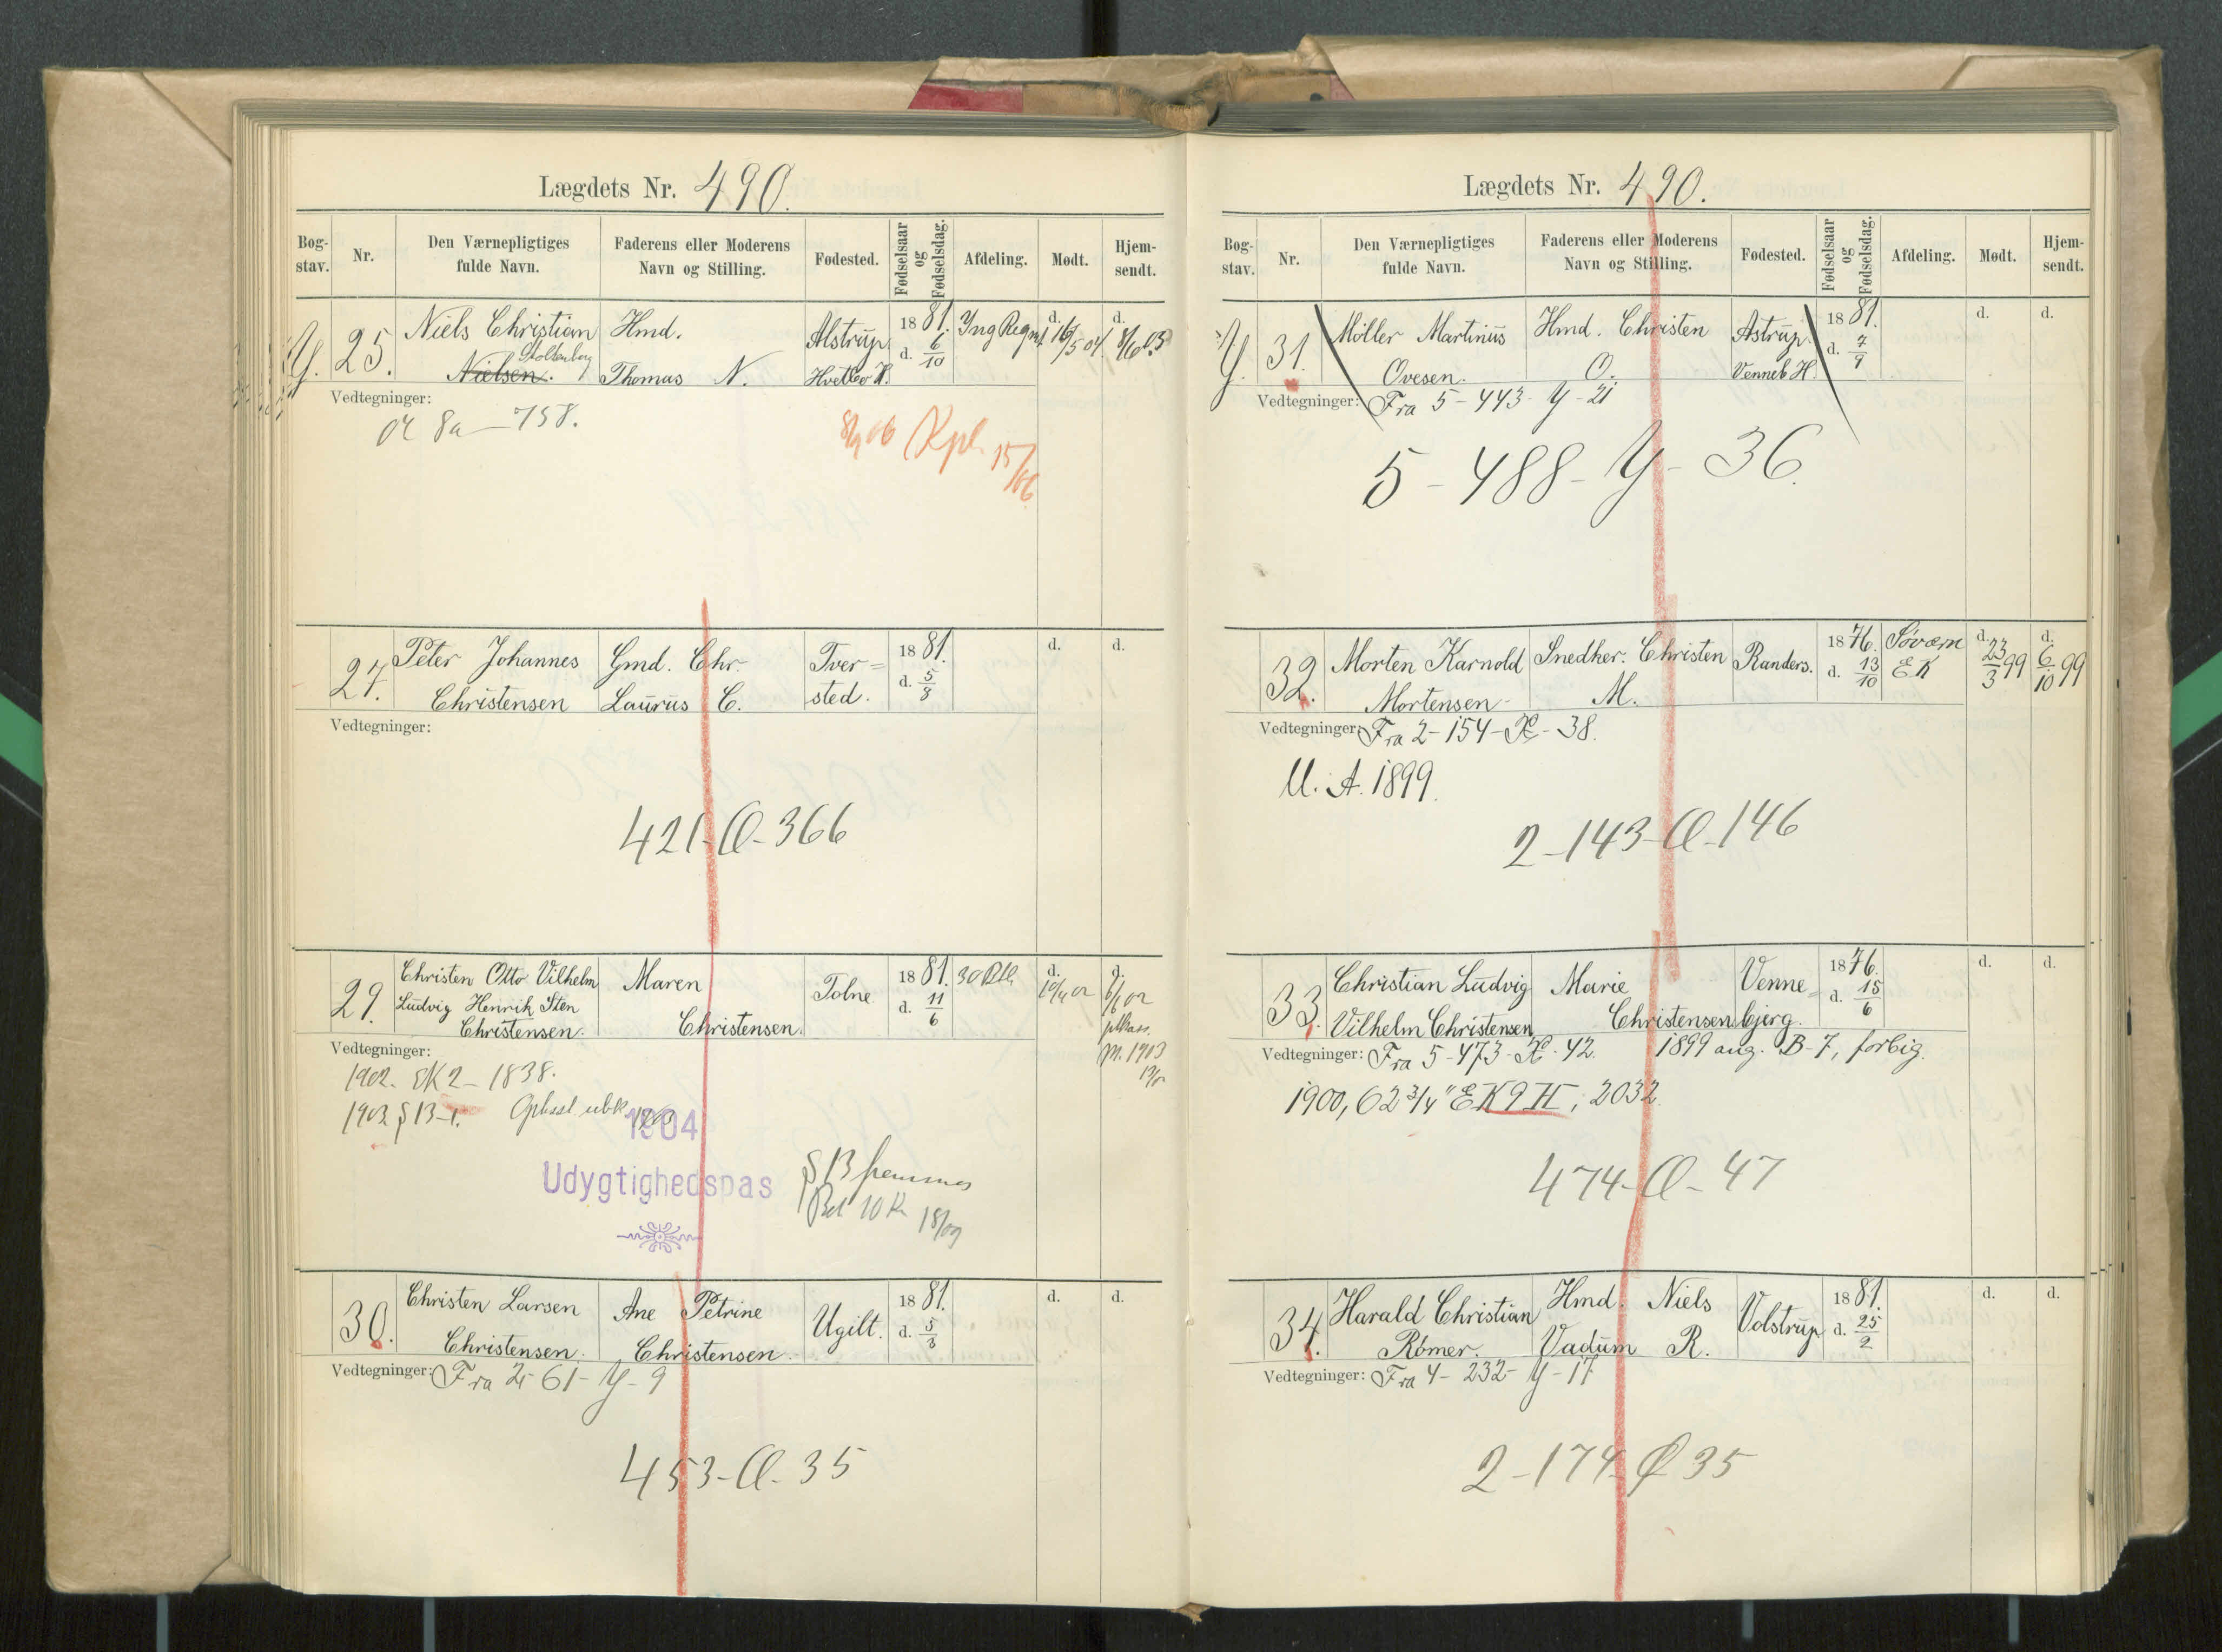 Lægdets Nr. 490.
Bog-stav. Nr. Den Værnepligtiges fulde Navn. Faderens eller Moderens Navn og Stilling. Fødested. Fødselsaar og Fødselsdag. Afdeling. Mødt. Hjem-sendt.
Y. 25. Niels Christian Hmd. Alstrup 1881. Yng Regmt d. 16/5 04 d.
Stoltenberg
Nielsen. Thomas N. Hvetbo H. d. 6/10
Vedtegninger:
04 8a - 758.
Rpl. 15/06
27. Peter Johannes Gmd. Chr. Tver= 1881. d. d.
Christensen Laurus C. sted. d. 5/8
Vedtegninger:
421-Q-366
29. Christen Otto Vilhelm Maren Tolne 1881. 30 Btl. d. d.
Ludvig Henrik Sten d. 11/6
Christensen. Christensen.
M. 1903
Vedtegninger:
1902. EK 2 - 1838.
1903 § 13-1.
1904
Udygtighedspas
§ 13 fremmes
Bet 10 Kr 18/09
30. Christen Larsen Ane Petrine Ugilt. 1881. d. d.
Christensen. Christensen. d. 5/3
Vedtegninger: Fra 2-61-Y-9
453-Q-35
Lægdets Nr. 490.
Bog-stav. Nr. Den Værnepligtiges fulde Navn. Faderens eller Moderens Navn og Stilling. Fødested. Fødselsaar og Fødselsdag. Afdeling. Mødt. Hjem-sendt.
Y. 31. Møller Martinus Hmd. Christen Astrup. 1881. d. d.
Ovesen. O. Venneb H. d. 7/9
Vedtegninger: Fra 5-443-Y-21
5-488-Y-36.
32. Morten Karnold Snedker. Christen Randers. 1876. Søværn d. 23/3 99 d. 6/10 99
Mortensen M. d. 13/10 EK
Vedtegninger: Fra 2-154-X-38.
U. A. 1899.
2-143-Q-146
33. Christian Ludvig Marie Venne= 1876. d. d.
Vilhelm Christensen Christensen. bjerg. d. 15/6
Vedtegninger: Fra 5-473-X-42. 1899 ang. B-7, forbig.
1900, 62 3/4" EK 9 II, 2032.
474-Q-47
34. Harald Christian Hmd. Niels Volstrup 1881. d. d.
Rømer. Vadum R. d. 25/2
Vedtegninger: Fra 4-232-Y-17
2-174-Q 35